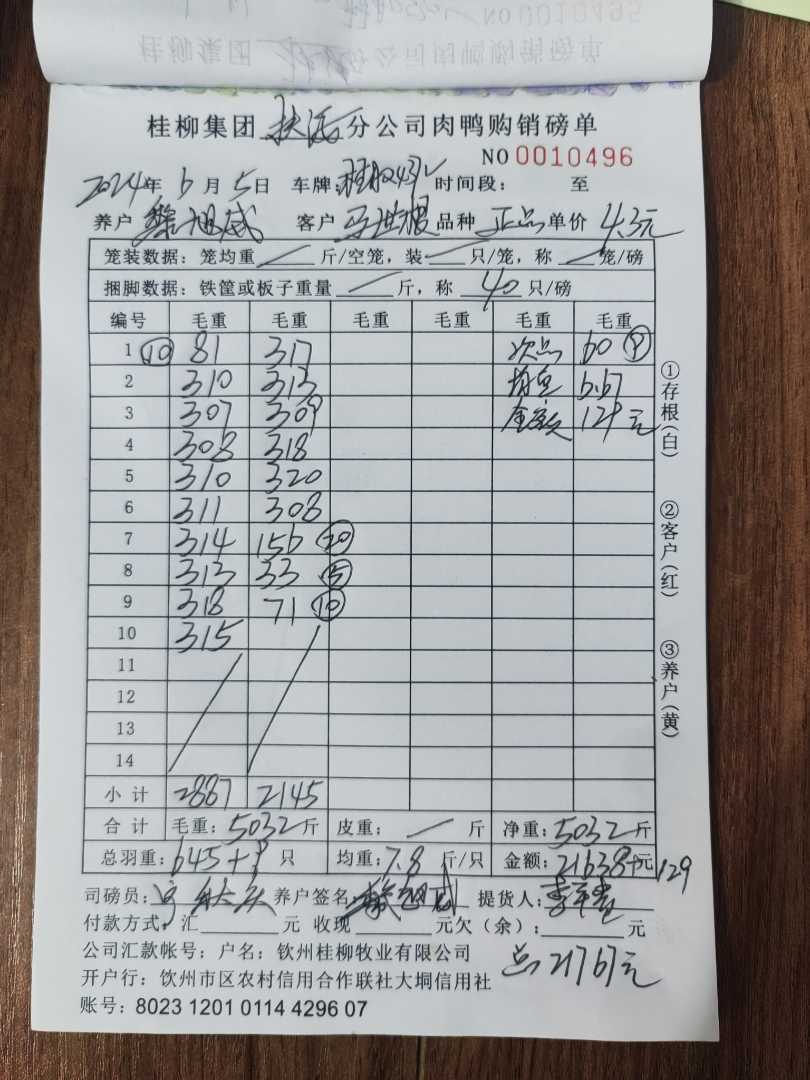 桂柳集团 分公司肉鸭购销磅单
NO 0010496
2024年6月5日 车牌: 时间段: 至
养户 黎旭威 客户 马世 品种 正品 单价 4.3元
笼装数据: 笼均重 / 斤/空笼, 装 / 只/笼, 称 / 笼/磅
捆脚数据: 铁筐或板子重量 / 斤, 称 40 只/磅
编号 毛重 毛重 毛重 毛重 毛重 毛重
1 ⑩ 81 317 次品 60 ⑨
2 310 313 均重 6.67
3 307 309 金额 129元
4 308 318
5 310 320
6 311 308
7 314 156 ⑳
8 313 33 ⑤
9 318 71 ⑩
10 315
11
12
13
14
小计 2887 2145
合计 毛重: 5032斤 皮重: / 斤 净重: 5032斤
总羽重: 645+9只 均重: 7.8斤/只 金额: 21638+元129
司磅员: 养户签名 黎旭威 提货人:
付款方式: 汇 元 收现 元欠(余): 元
公司汇款帐号: 户名: 钦州桂柳牧业有限公司
总21767元
开户行: 饮州市区农村信用合作联社大垌信用社
账号: 8023 1201 0114 4296 07
①存根(白)
②客户(红)
③养户(黄)